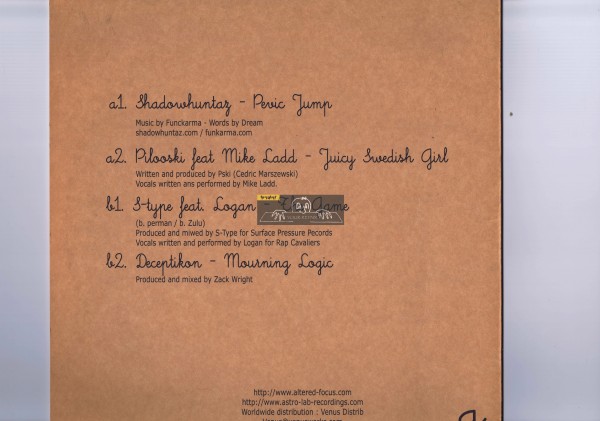 a1. Shadowhuntaz - Pevic Jump
Music by Funckarma - Words by Dream
shadowhuntaz.com / funkarma.com
a2. Pilooski feat Mike Ladd - Juicy Swedish Girl
Written and produced by Pski (Cedric Marszewski)
Vocals written ans performed by Mike Ladd.
b1. S-type feat. Logan - Game
(b. perman / b. Zulu)
Produced and miwed by S-Type for Surface Pressure Pecords
Vocals written and performed by Logan for Rap Cavaliers
b2. Deceptikon - Mourning Logic
Produced and mixed by Zack Wright
http://www.altered-focus.com
http://www.astro-lab-recordings.com
Worldwide distribution : Venus Distrib